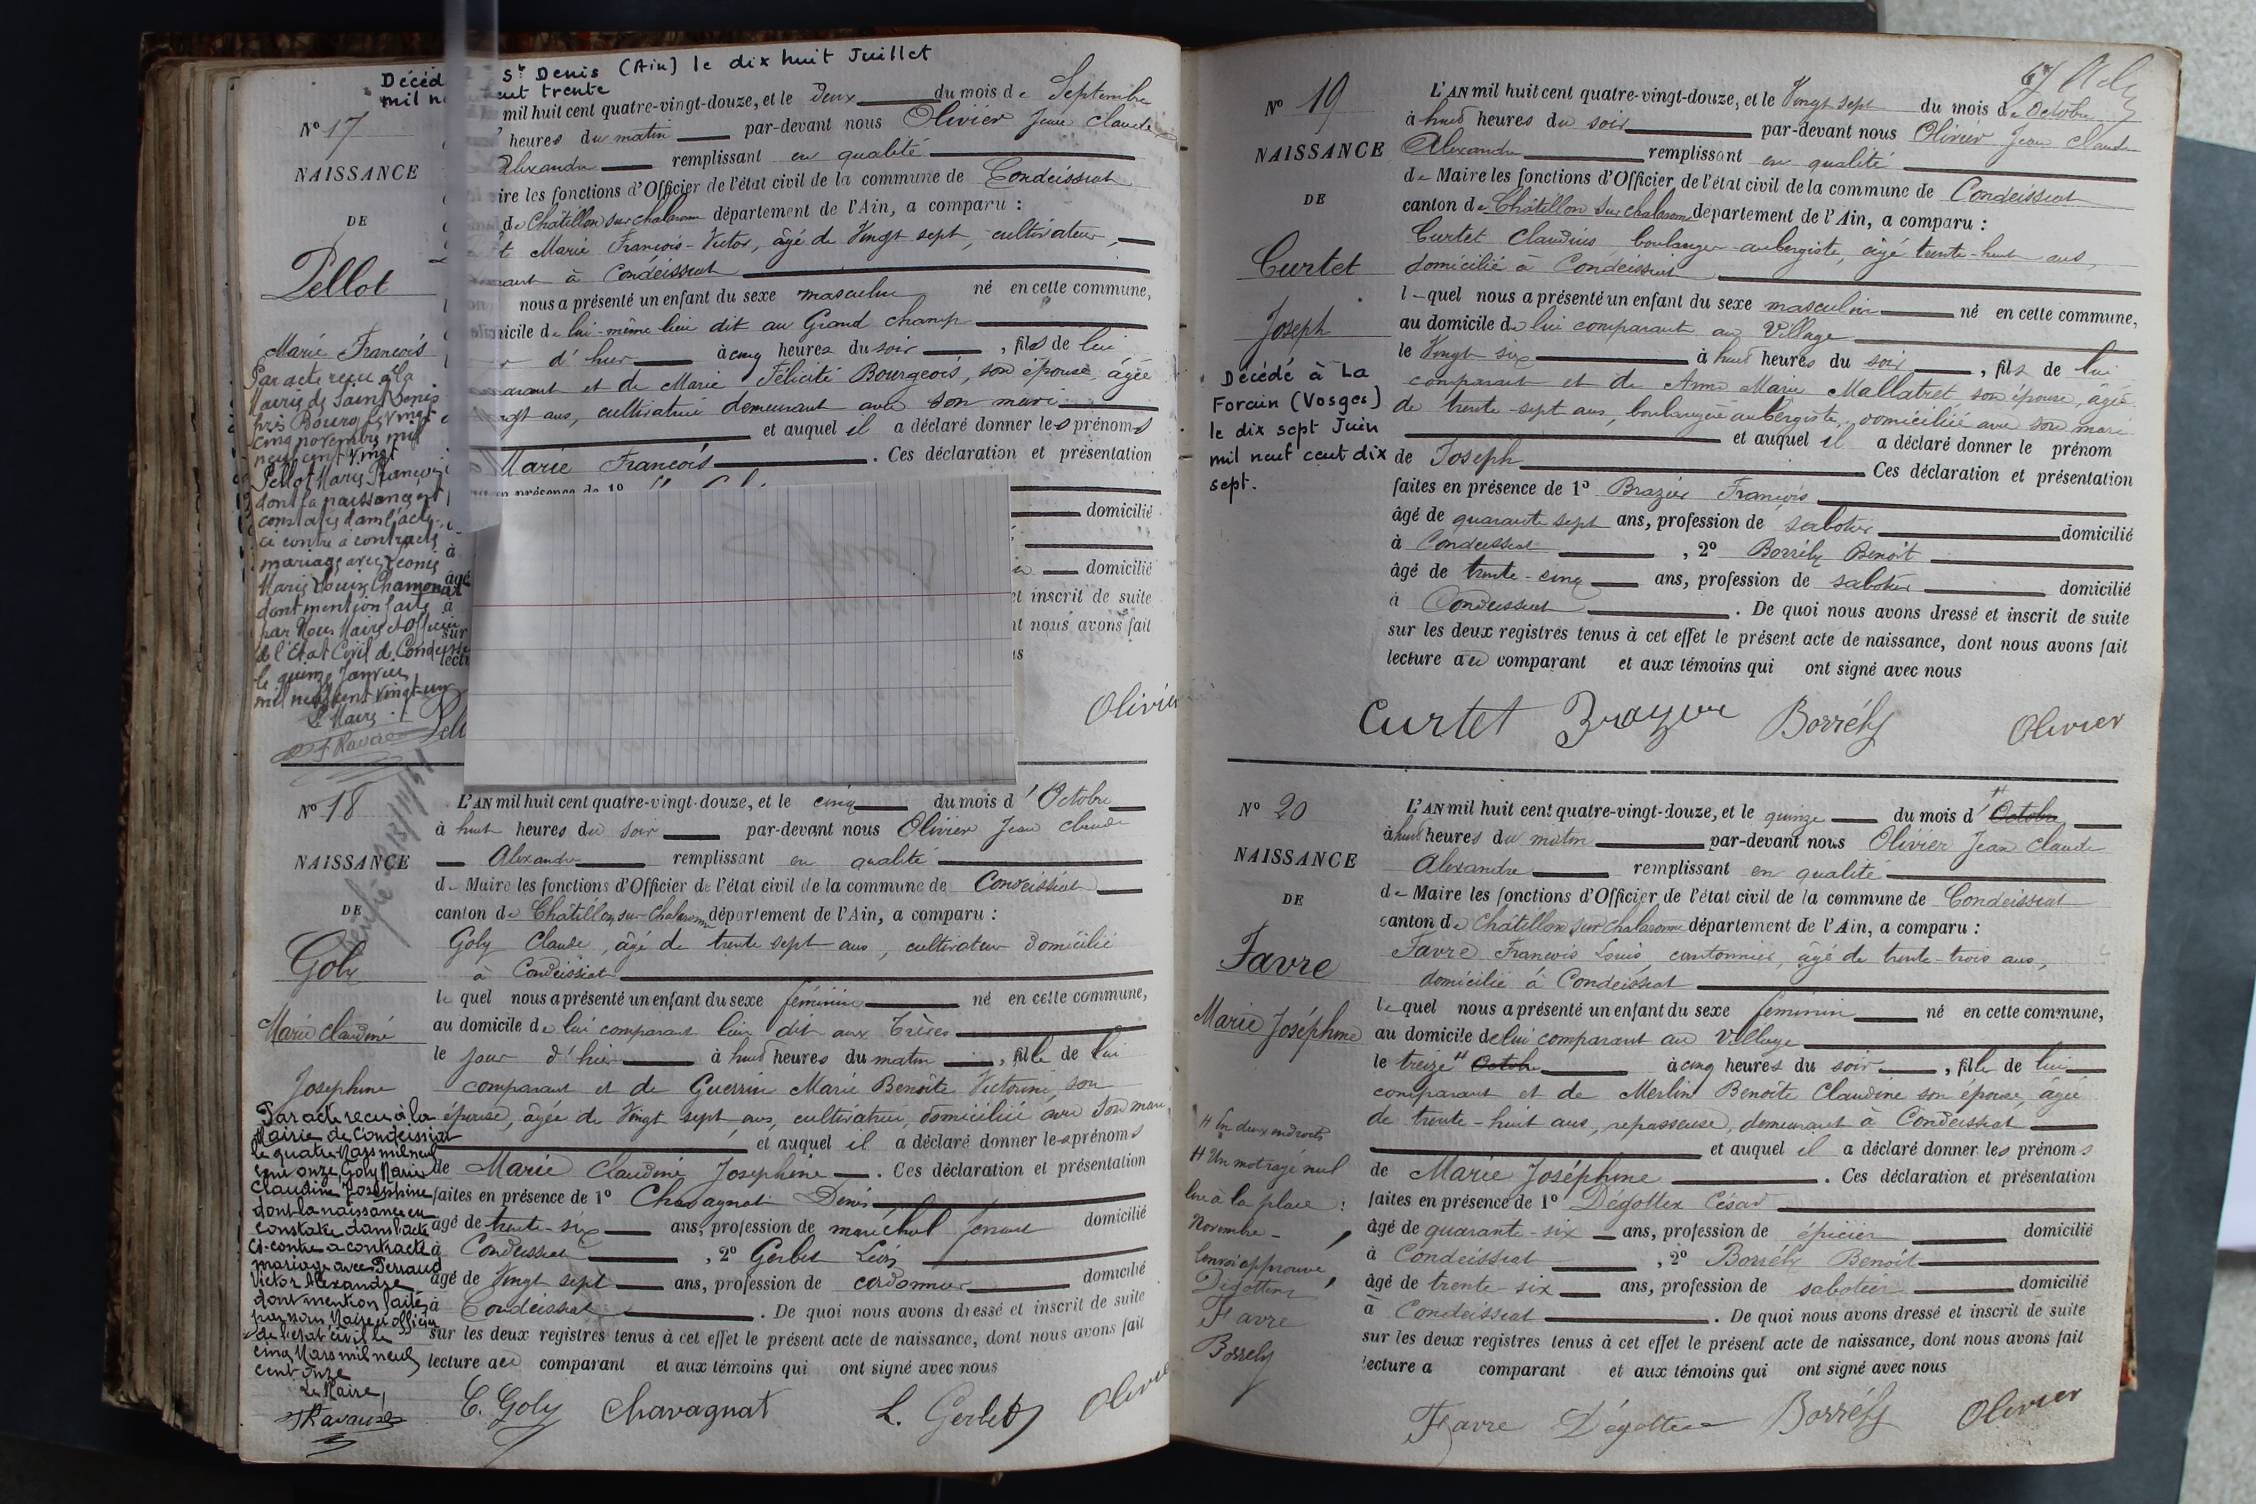 Décéd St Denis (Ain) le dix huit Juillet
mil n cent trente
No 17
NAISSANCE
DE
Pellot
Marie François
Par acte reçu à la
Mairie de Saint Denis
près Bourg le vingt
cinq novembre mil
neuf cent vingt
Pellot Marie François
dont la naissance est
constatée dans l'acte
ci contre a contracté
mariage avec Léonie
Marie Louise Chamonal
dont mention faite
par Nous Maire et Officier
de l'Etat Civil de Condeissiat
le quinze Janvier
mil neuf cent vingt-un
Le Maire
mil huit cent quatre-vingt-douze, et le deux du mois de Septembre
heures du matin par-devant nous Olivier Jean Claude
Alexandre remplissant en qualité
ire les fonctions d'Officier de l'état civil de la commune de Condeissiat
de Châtillon sur Chalaronne département de l'Ain, a comparu :
t Marie François-Victor, âgé de Vingt sept, cultivateur,
à Condeissiat
nous a présenté un enfant du sexe masculin né en cette commune,
icile de lui-même lieu dit au Grand champ
d'hier à cinq heures du soir, fils de lui
arant et de Marie Félicité Bourgeois, son épouse, âgée
ans, cultivatrice demeurant avec son mari
et auquel il a déclaré donner les prénoms
Marie François. Ces déclaration et présentation
en présence de 1o
domicilié
domicilié
et inscrit de suite
nt nous avons fait
Olivier
No 18
NAISSANCE
DE
Goly
Marie Claudine
Joséphine
Par acte reçu à la
Mairie de Condeissiat
le quatre Mars mil neuf
cent onze, Goly Marie
Claudine Joséphine
dont la naissance est
constatée dans l'acte
ci-contre a contracté
mariage avec Perraud
Victor Alexandre
dont mention faite
par nous Maire et officier
de l'état civil le
cinq Mars mil neuf
cent onze
Le Maire,
L'AN mil huit cent quatre-vingt-douze, et le cinq du mois d'Octobre
à huit heures du soir par-devant nous Olivier Jean Claude
Alexandre remplissant en qualité
de Maire les fonctions d'Officier de l'état civil de la commune de Condeissiat
canton de Châtillon sur Chalaronne département de l'Ain, a comparu :
Goly Claude, âgé de trente sept ans, cultivateur domicilié
à Condeissiat
lequel nous a présenté un enfant du sexe féminin né en cette commune,
au domicile de lui comparant lieu dit aux
le jour d'hier à huit heures du matin, fille de lui
comparant et de Guerrin Marie Benoîte Victorine, son
épouse, âgée de Vingt sept ans, cultivatrice, domiciliée avec son mari
et auquel il a déclaré donner les prénoms
de Marie Claudine Joséphine. Ces déclaration et présentation
faites en présence de 1o Chavagnat Denis
âgé de trente-six ans, profession de maréchal ferrant domicilié
à Condeissiat, 2o Gerbet Léon
âgé de Vingt sept ans, profession de cordonnier domicilié
à Condeissiat. De quoi nous avons dressé et inscrit de suite
sur les deux registres tenus à cet effet le présent acte de naissance, dont nous avons fait
lecture au comparant et aux témoins qui ont signé avec nous
C. Goly Chavagnat L. Gerbet Olivier
67
No 19
NAISSANCE
DE
Curtet
Joseph
Décédé à La
Forain (Vosges)
le dix sept Juin
mil neuf cent dix
sept.
L'AN mil huit cent quatre-vingt-douze, et le Vingt sept du mois de Octobre
à huit heures du soir par-devant nous Olivier Jean Claude
Alexandre remplissant en qualité
de Maire les fonctions d'Officier de l'état civil de la commune de Condeissiat
canton de Châtillon sur Chalaronne département de l'Ain, a comparu :
Curtet Claudius boulanger-aubergiste, âgé trente-huit ans,
domicilié à Condeissiat
lequel nous a présenté un enfant du sexe masculin né en cette commune,
au domicile de lui comparant au Village
le Vingt six à huit heures du soir, fils de lui
comparant et de Anne Marie Mallatret son épouse, âgée
de trente-sept ans, boulangère aubergiste, domiciliée avec son mari
et auquel il a déclaré donner le prénom
de Joseph Ces déclaration et présentation
faites en présence de 1o Brazier François
âgé de quarante sept ans, profession de sabotier domicilié
à Condeissiat, 2o Borrély Benoît
âgé de trente-cinq ans, profession de sabotier domicilié
à Condeissiat. De quoi nous avons dressé et inscrit de suite
sur les deux registres tenus à cet effet le présent acte de naissance, dont nous avons fait
lecture au comparant et aux témoins qui ont signé avec nous
Curtet Brazier Borrély Olivier
No 20
NAISSANCE
DE
Favre
Marie Joséphine
# En deux endroits
# Un mot rayé nul
lire à la place :
Novembre
Renvoi approuvé
Dégottex
Favre
Borrely
L'AN mil huit cent quatre-vingt-douze, et le quinze du mois d'# Octobre
à huit heures du matin par-devant nous Olivier Jean Claude
Alexandre remplissant en qualité
de Maire les fonctions d'Officier de l'état civil de la commune de Condeissiat
canton de Châtillon sur Chalaronne département de l'Ain, a comparu :
Favre François Louis, cantonnier, âgé de trente-trois ans,
domicilié à Condeissiat
lequel nous a présenté un enfant du sexe féminin né en cette commune,
au domicile de lui comparant au Village
le treize # Octobre à cinq heures du soir, fille de lui
comparant et de Merlin Benoîte Claudine son épouse, âgée
de trente-huit ans, repasseuse, demeurant à Condeissiat
et auquel il a déclaré donner les prénoms
de Marie Joséphine. Ces déclaration et présentation
faites en présence de 1o Dégottex César
âgé de quarante-six ans, profession de épicier domicilié
à Condeissiat, 2o Borrély Benoît
âgé de trente six ans, profession de sabotier domicilié
à Condeissiat. De quoi nous avons dressé et inscrit de suite
sur les deux registres tenus à cet effet le présent acte de naissance, dont nous avons fait
lecture a comparant et aux témoins qui ont signé avec nous
Favre Dégottex Borrély Olivier